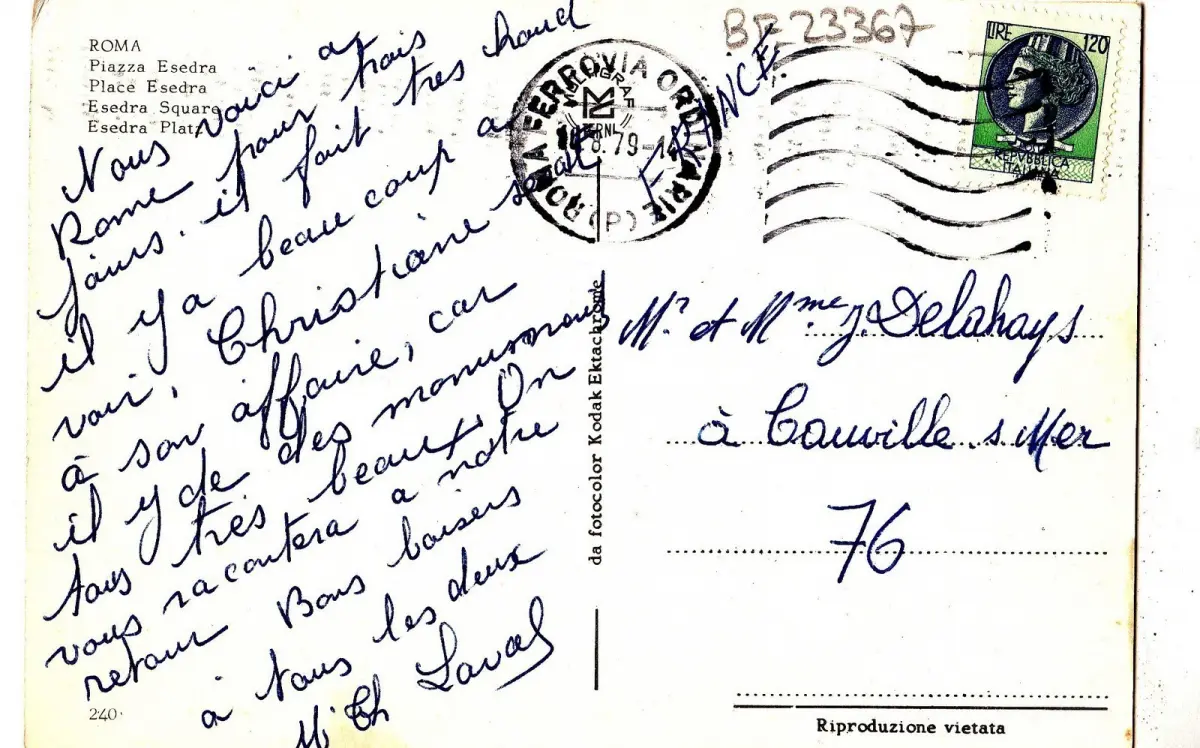 ROMA
Piazza Esedra
Place Esedra
Esedra Square
Esedra Platz
Nous voici a
Rome pour trois
jours. il fait tres chaud
il y a beau coup a
voir, Christiane serait
à son affaire, car
il y de des monuments
tous très beaux. On
vous racontera a notre
retour Bons baisers
à tous les deux
M Ch Laval
240.
da fotocolor Kodak Ektachrome
BF 23367
ROMA FERROVIA ORDINARIE (P)
8.79-14
FRANCE
LIRE 120
REPVBBLICA
ITALIANA
Mr et Mme J. Delahays
à Cauville s Mer
76
Riproduzione vietata